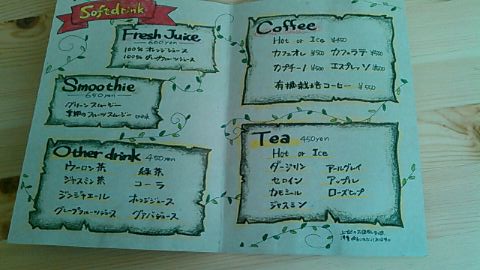 Softdrink
Fresh Juice
600yen
100% オレンジジュース
100% グレープフルーツジュース
Smoothie
650yen
グリーンスムージー
季節のフルーツスムージー
Other drink 450yen
ウーロン茶 緑茶
ジャスミン茶 コーラ
ジンジャエール オレンジジュース
グレープフルーツジュース グァバジュース
Coffee
Hot or Ice ¥450
カフェオレ ¥500 カフェラテ ¥500
カプチーノ ¥500 エスプレッソ ¥500
有機栽培コーヒー ¥500
Tea 450yen
Hot or Ice
ダージリン アールグレイ
セイロン アップル
カモミール ローズヒップ
ジャスミン